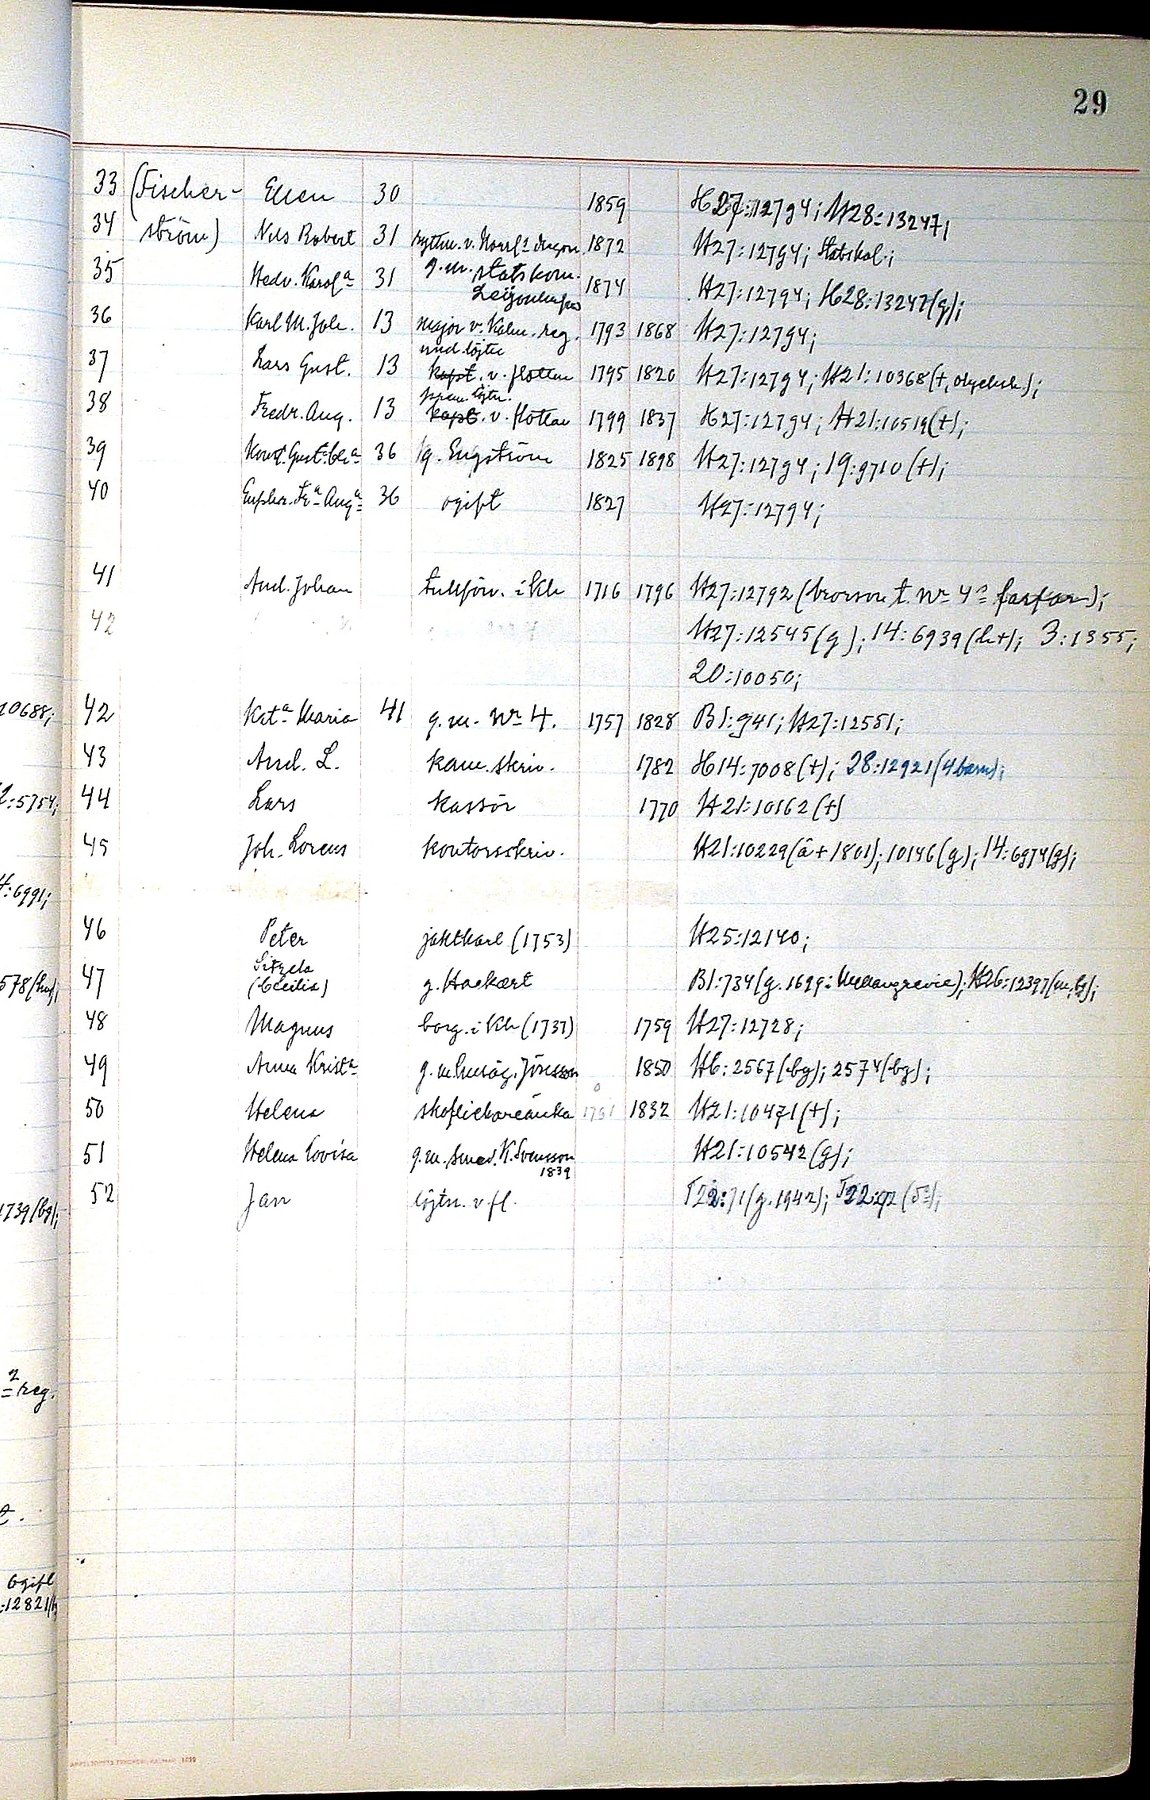 29
33 (Fischer- Ellen 30 1859 H27:12794; H28:13247;
34 ström) Nils Robert 31 ryttm. v. Norrl:s dragon. 1872 H27:12794; Statskal.;
35 Hedv. Karol:a 31 g.m. statskom. 1874 H27:12794; H28:13247(g);
Leijonhufvud
36 Karl M. Joh. 13 major v. Kalm. reg. 1793 1868 H27:12794;
und.löjtn.
37 Lars Gust. 13 kapt. v. flottan 1795 1820 H27:12794; H21:10368(+, olycksh.);
prem.löjtn.
38 Fredr. Aug. 13 kapt. v. flottan 1799 1837 H27:12794; H21:10519(+);
39 36 1g. Engström 1825 1898 H27:12794; 19:9710(+);
40 Euphr. Fr:a Aug:a 36 ogift 1827 H27:12794;
41 And. Johan tullförv. i Klr 1716 1796 H27:12792 (brorson t. Nr 4:s farfar);
42 H27:12545(g); 14:6939(h+); 3:1355;
20:10050;
42 Kat:a Maria 41 g.m. Nr 4. 1757 1828 B1:941; H27:12581;
43 And. L. kam.skriv. 1782 H14:7008(+); 28:12921(4 barn);
44 Lars kassör 1770 H21:10162(+)
45 Joh. Lorens kontorsskriv. H21:10229(ä+1801); 10146(g); 14:6974(g);
46 Peter jaktkarl (1753) H25:12140;
47 Sitzela g. Hackært B1:734(g. 1699 i ); H26:12397(m, bg);
(Cecilia)
48 Magnus borg. i Klr (1737) 1759 H27:12728;
49 Anna Krist:a g. m. Jönsson 1850 H6:2567(bg); 2574(bg);
50 Helena skoflickareänka 1751 1832 H21:10471(+);
51 Helena Lovisa g.m. smed. K. Svensson H21:10542(g);
1839
52 Jan löjtn. v fl. T22:71(g. 1942); T22:92 (d:o);
20688;
:5754;
:6991;
578(
1739(bg);
2 reg.
t.
Ogift
:12821/